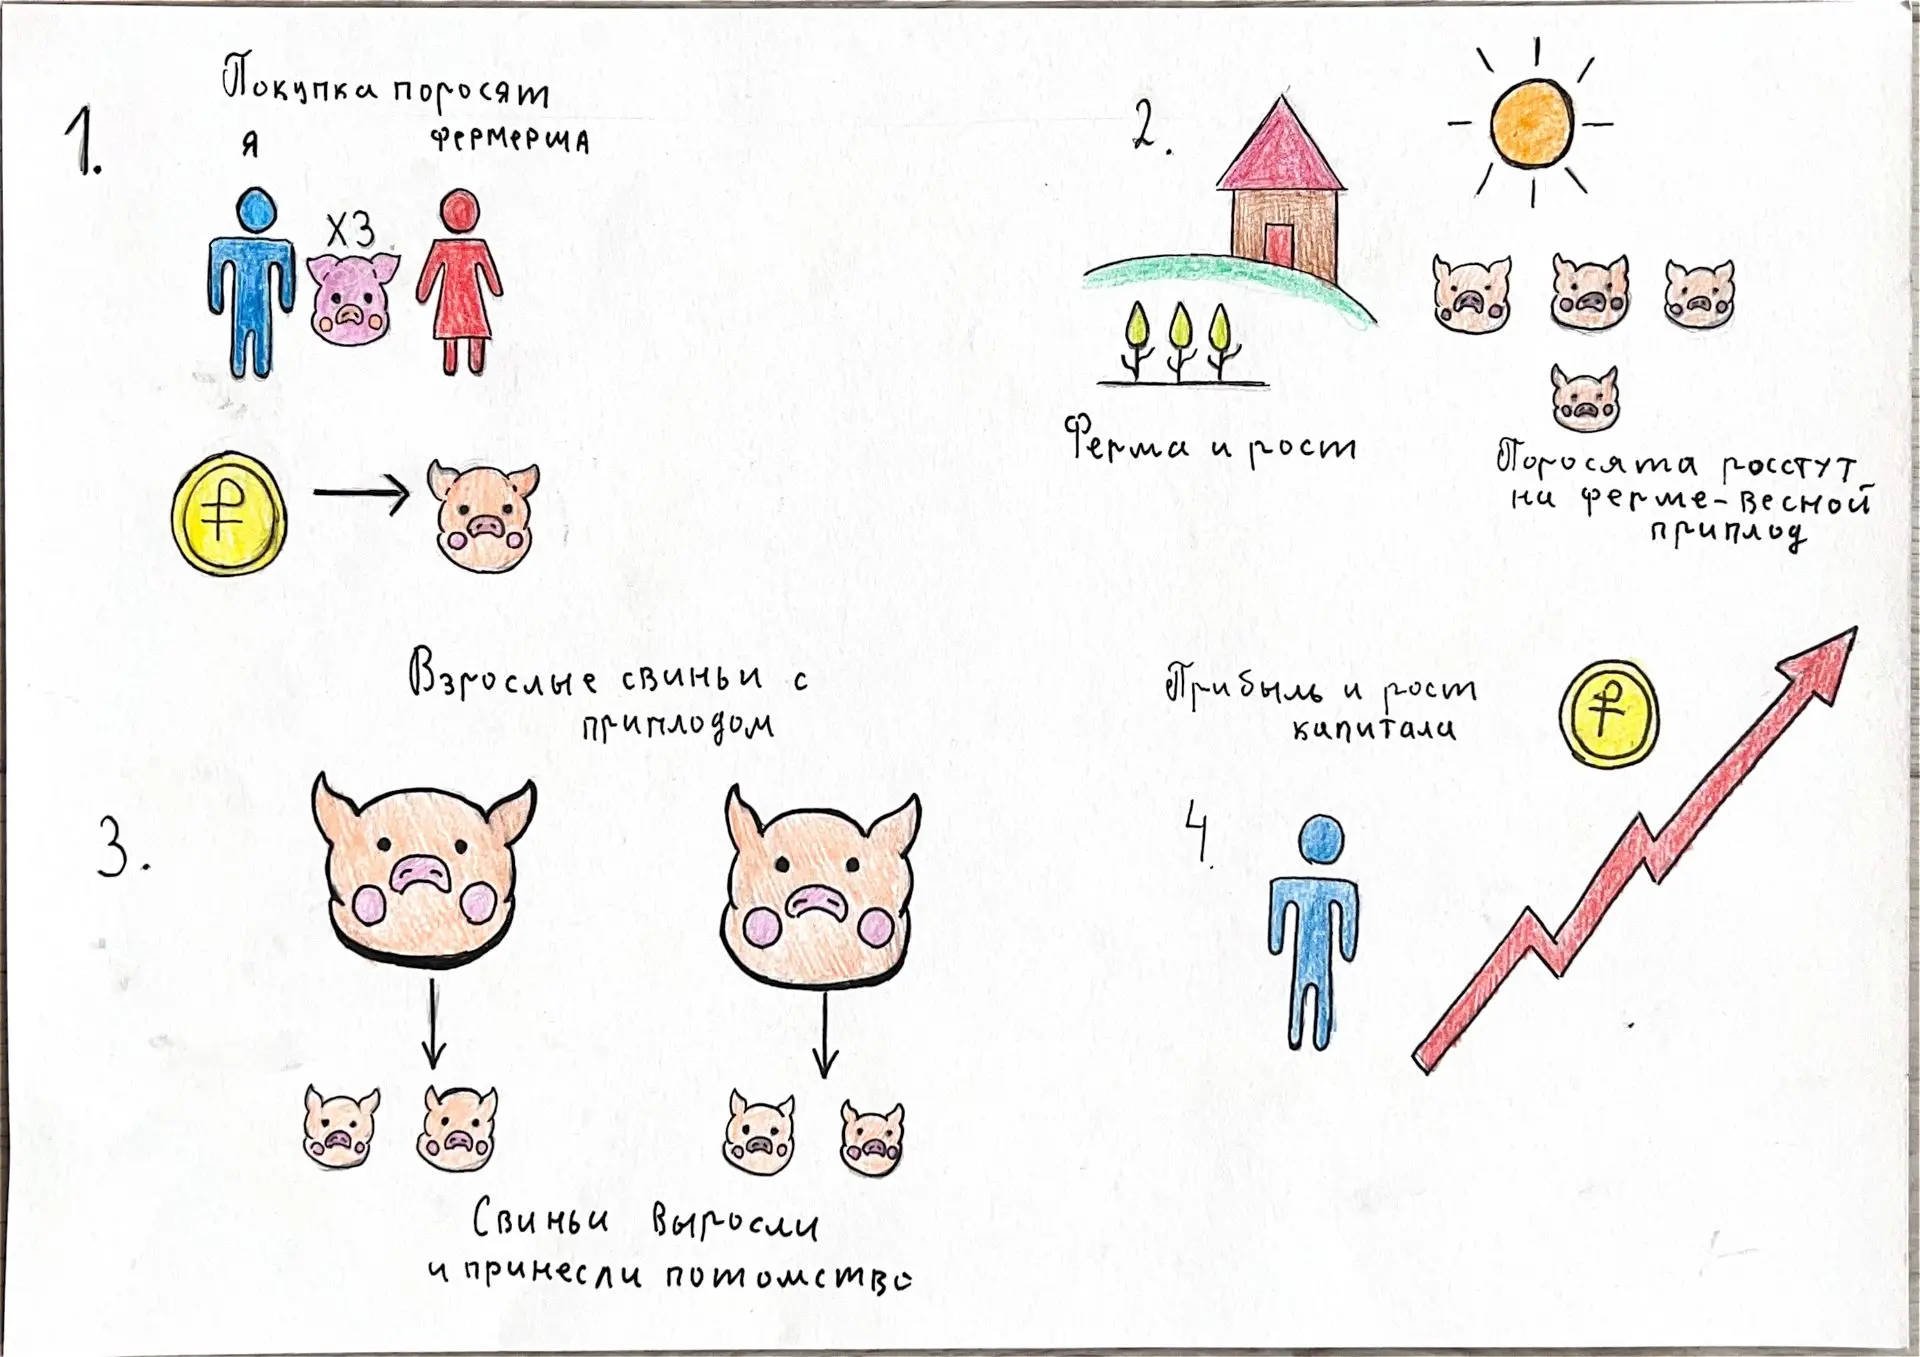 1.
Покупка поросят
я
фермерша
х3
₽
2.
Ферма и рост
Поросята росстут
на ферме-весной
приплод
3.
Взрослые свиньи с
приплодом
Свиньи выросли
и принесли потомство
4.
Прибыль и рост
капитала
₽